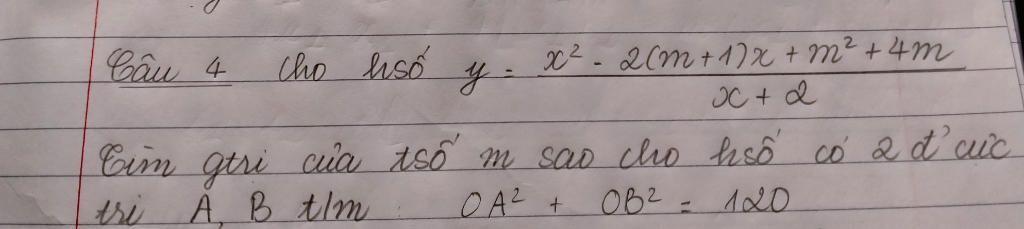 Câu 4 Cho hsố y = (x² - 2(m+1)x + m² + 4m) / (x + 2)
Tìm gtri của tsố m sao cho hsố có 2 đ' cực
tri A, B t/m : OA² + OB² = 120